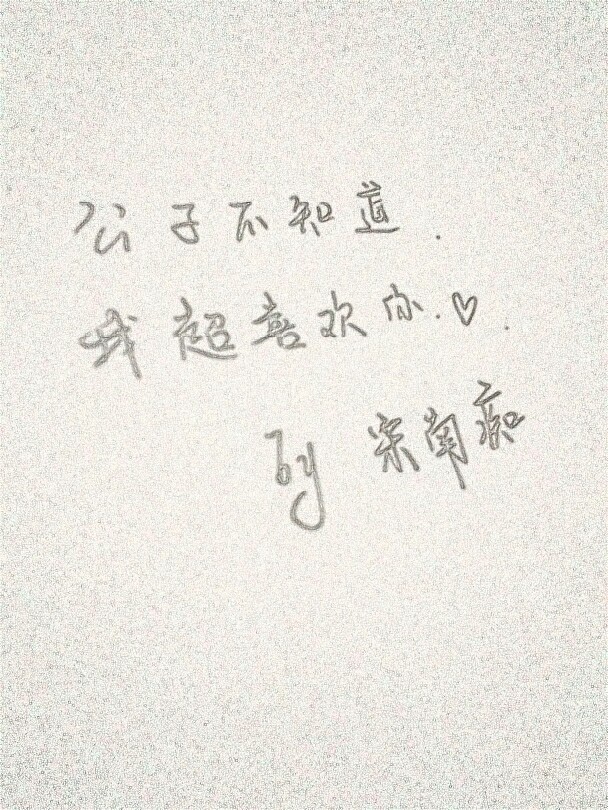 公子不知道.
我超喜欢你.♡.
by 宋南痴